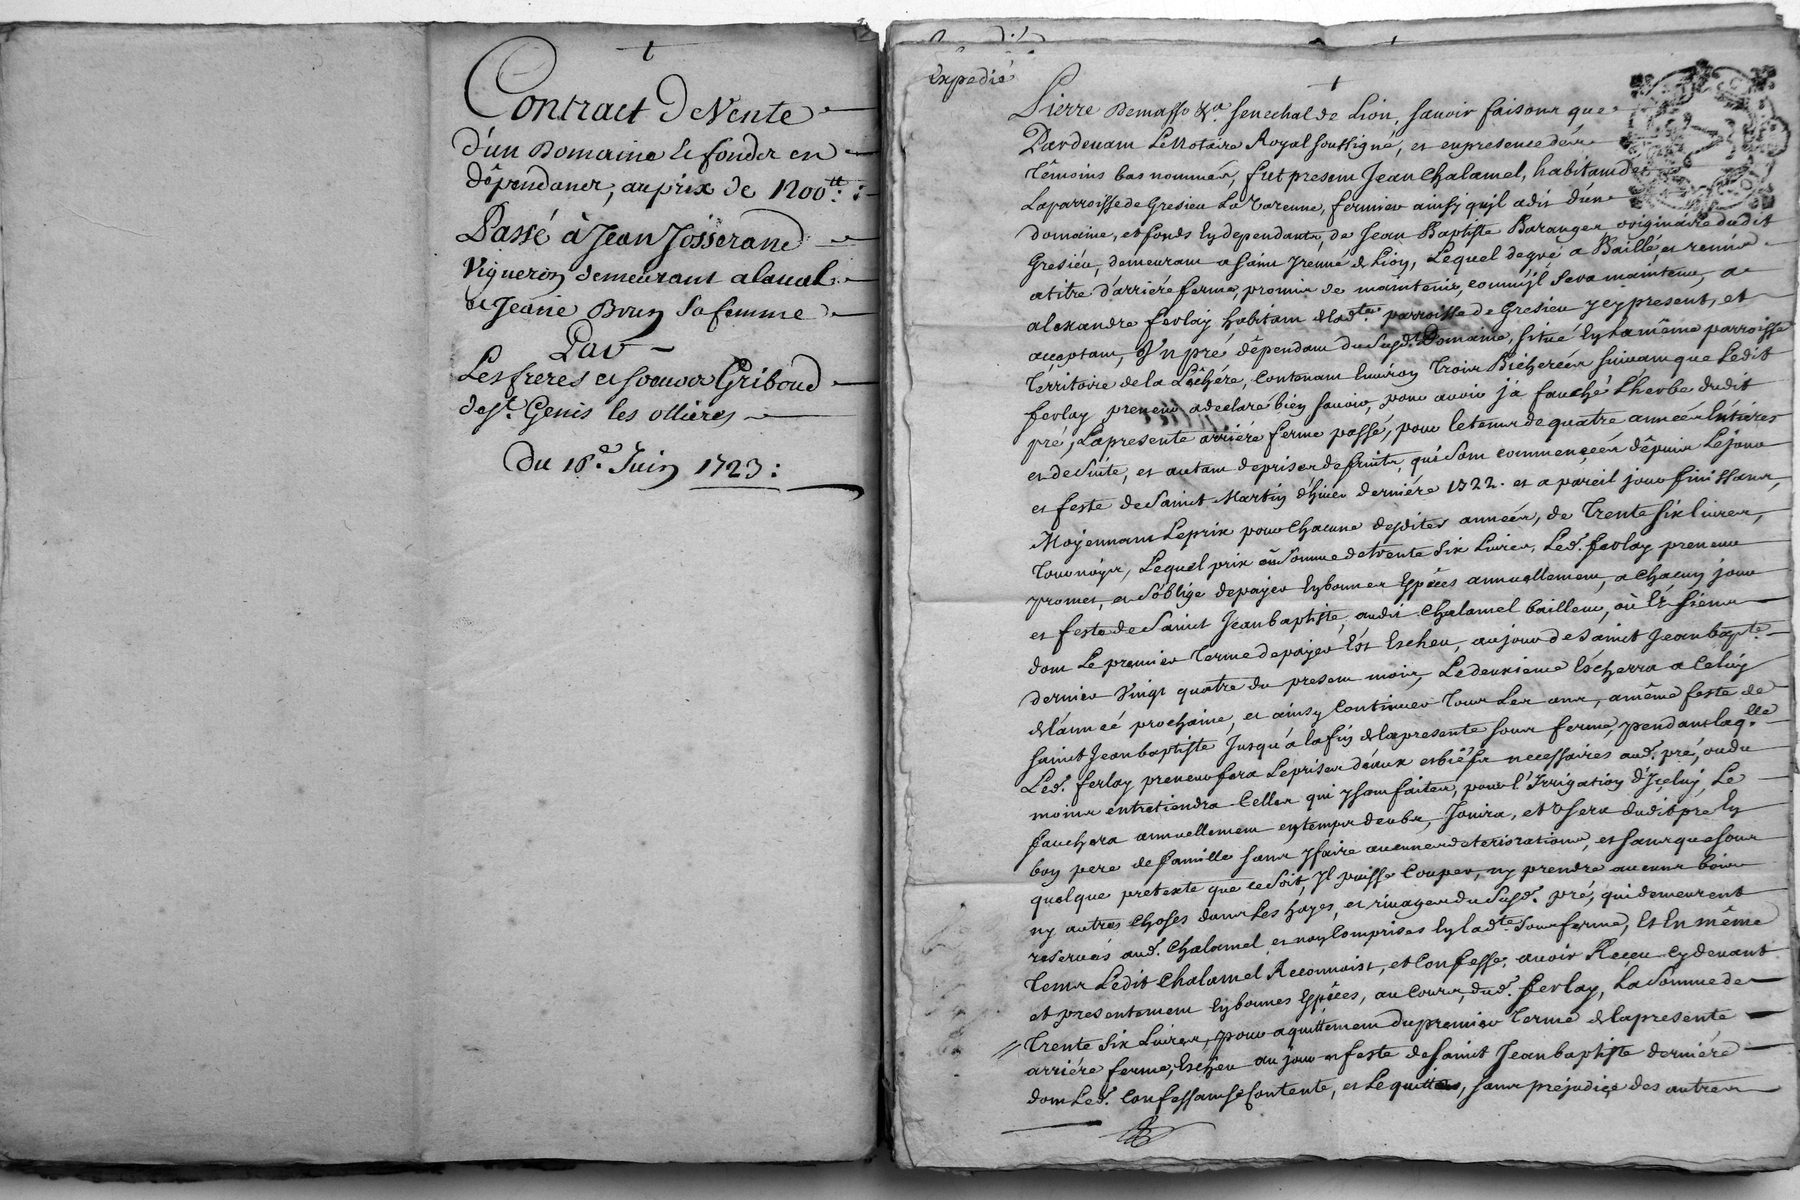 Contract De Vente
d'un Domaine et fonder en
dêpendance, au prix de 1200tt:
Passé à Jean Josserand
Vigneron demeurant a laval
et Jeanne Brun Sa femme
Par
Les freres et soeurs Griboud
de St. Genis les ollieres
Du 18e Juin 1723:
Expedié
Pierre Demasso &a. senechal de Lion, savoir faisons que
Pardevant Le Notaire Royal soussigné, et en presence des
têmoins bas nommés, fut present Jean Chalamel, habitant de
La parroisse de Gresieu La Varenne, fermier ainsy qu'il a dit d'un
domaine, et fonds en dependants, de Jean Baptiste Baranger originaire dudit
Gresieu, demeurant a saint Irenné de Lion, Lequel de gré a Baillé, et remis
a titre d'arriére ferme, promis de maintenir, comm'jl sera maintenu, a
alexandre ferlay habitant de lad.te parroisse de Gresieu jcy present, et
acceptant, Un pré dêpendant du Susd. Domaine, situé en la même parroisse
Territoire de la Lêchére, Contenant Environ Trois Bicherées suivant que Ledit
ferlay preneur a declaré bien savoir, pour avoir ja fauché L'herbe dudit
pré, La presente arriére ferme passé, pour le tems de quatre années Entiéres
et de Suite, et autant de prises de fruits, qui sont commencées dêpuis Le jour
et feste de Saint Martin d'hiver derniére 1722. et a pareil jour finissant,
Moyennant Le prix pour Chacune desdites années, de Trente Six Livres,
Tournois, Lequel prix ou Somme de trente Six Livres, Led. ferlay preneur
promet, et s'oblige de payer En bonnes Espêces annuellement, a Chacun jour
et feste de Saint Jean baptiste, audit Chalamel bailleur, où Es siens
dont Le premier Terme de payer Est Escheu, au jour de Saint Jean bapte
dernier Vingt quatre du present mois, Le deuxieme Escherra a Celuy
de l'année prochaine, et ainsy Continuer Tous Les ans, a même feste de
Saint Jean baptiste Jusqu'a la fin de la presente sous ferme, pendant laq.lle
Led. ferlay preneur fera Les prises d'eaux et biefs necessaires aud. pré, ou du
moins entretiendra Celles qui y sont faites, pour l'Irrigation d'Iceluy, Le
fauchera annuellement en temps deubs, Jouira, et Usera dudit pré En
bon pere de famille sans y faire aucunes deteriorations, et sans que sous
quelque pretexte que ce Soit, Jl puisse Couper, ny prendre aucuns bois
ny autres Choses dans Les hayes, et rivages du Susd. pré, qui demeurent
reservés aud. Chalamel et non Comprises En lad.te sous ferme, Et En même
tems Ledit Chalamel Reconnoist, et Confesse, avoir Reçeu Cy devant
et presentement En bonnes Espêces, au Cours, dud. ferlay, La Somme de
Trente Six Livres, pour aquittement du premier Terme de la presente
arriére ferme, Escheu au jour et feste de Saint Jean baptiste derniére
dont Led. Confessant se Contente, et Le quitte, sans prejudice des autres